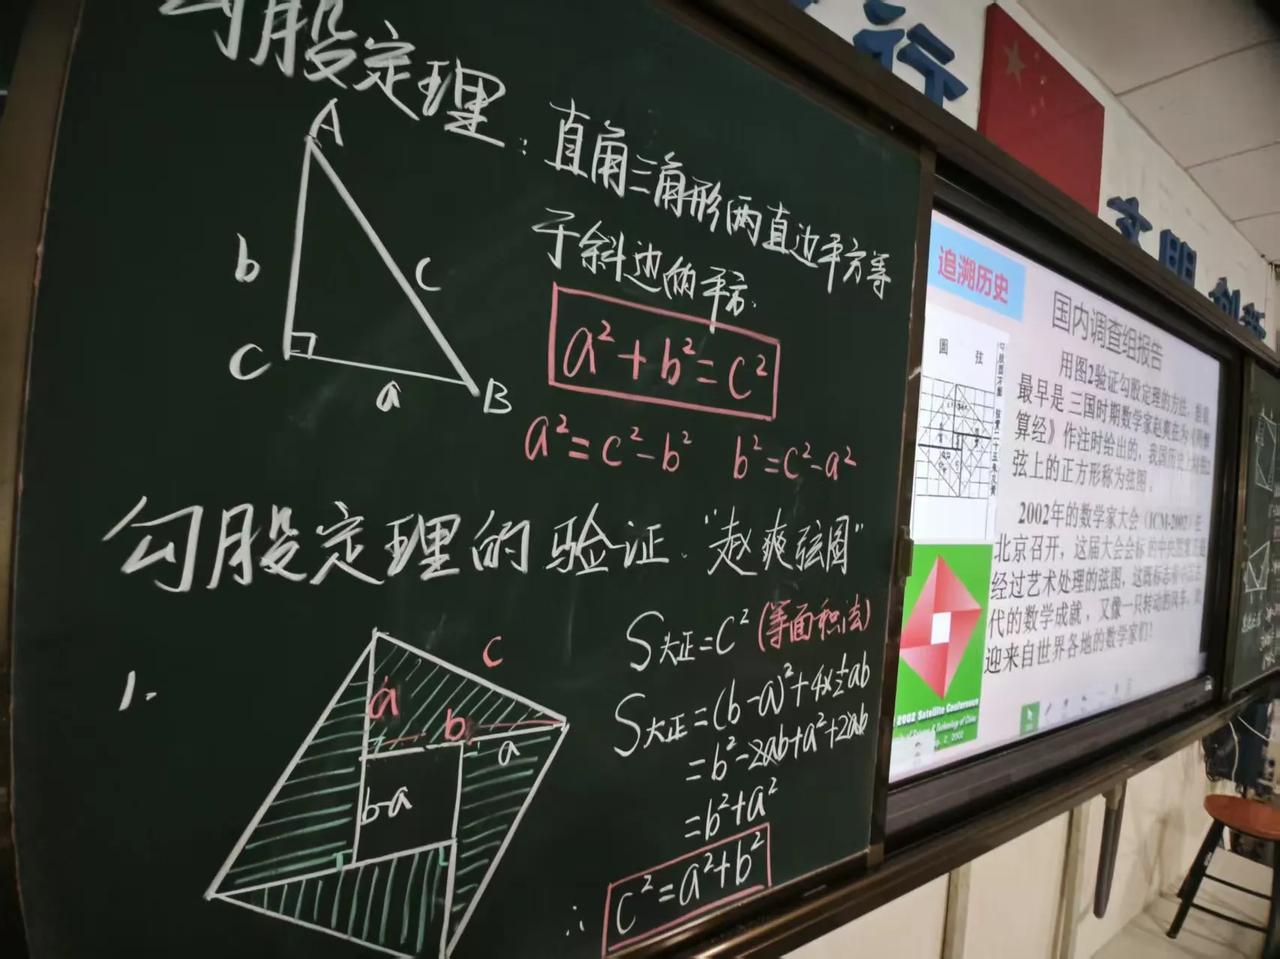 勾股定理：直角三角形两直边平方等
于斜边的平方.
A
b
c
C
a
B
a²+b²=c²
a²=c²-b² b²=c²-a²
勾股定理的验证."赵爽弦图"
1.
c
a
b
a
b-a
S大正=c²(等面积法)
S大正=(b-a)²+4×½ab
=b²-2ab+a²+2ab
=b²+a²
∴ c²=a²+b²
行
文明
追溯历史
国内调查组报告
用图2验证勾股定理的方法，
最早是三国时期数学家赵爽在为《
算经》作注时给出的，我国历史上
弦上的正方形称为弦图。
2002年的数学家大会（ICM-2002）在
北京召开，这届大会会标的中央图案
经过艺术处理的弦图，这既标志着
代的数学成就，又像一只转动的风车，
迎来自世界各地的数学家们！
圆 弦
2002 Satellite Conference